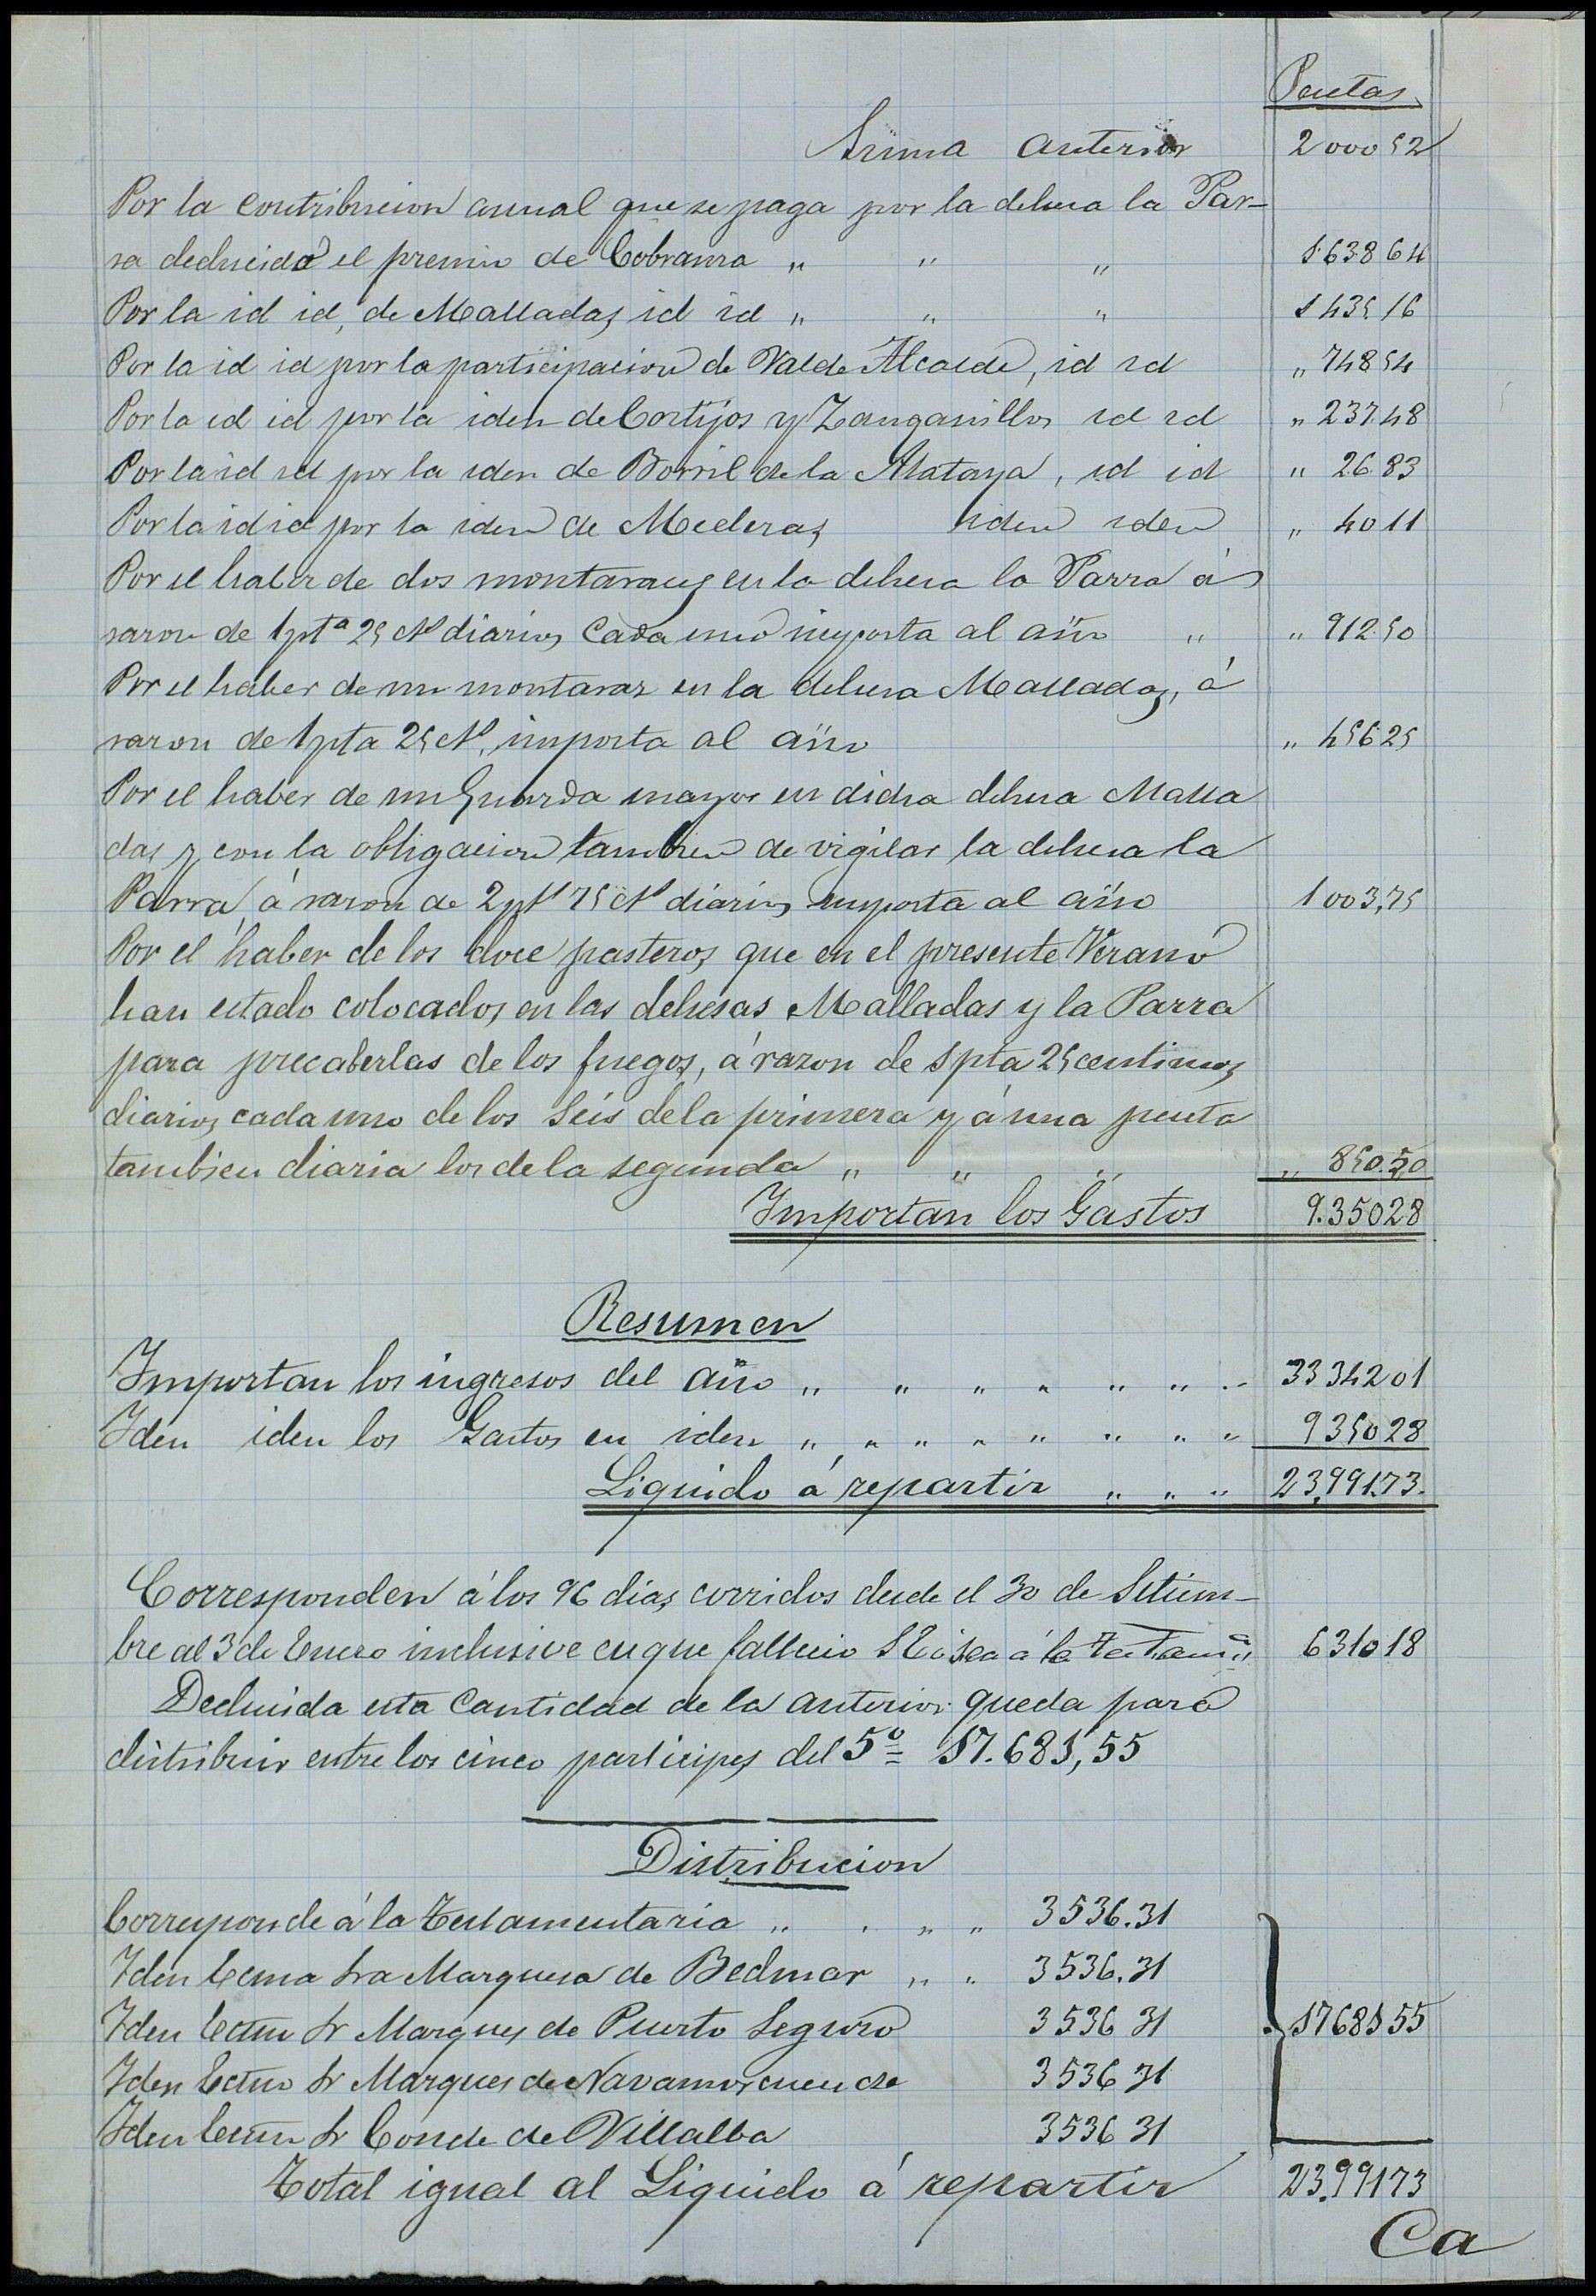 Pesetas
Suma anterior 2000 52
Por la contribucion anual que se paga por la dehesa la Par-
ra deducido el premio de Cobranza „ „ „ 1.638 64
Por la id id, de Malladas id id „ „ „ 1 435 16
Por la id id por la participacion de Valde Alcalde, id id „ 748 54
Por la id id por la iden de Cortijos y Zanganillos id id „ 237.48
Por la id id por la iden de Borril de la Atataya, id id „ 26 83
Por la id id por la iden de Mederas iden iden „ 40 11
Por el haber de dos montaraces en la dehesa la Parra á
razon de 1 pta 25 cs diarios cada uno importa al año „ „ 912.50
Por el haber de un montaraz en la dehesa Malladas, á
razon de 1 pta 25 cs, importa al año „ 456 25
Por el haber de un Guarda mayor en dicha dehesa Malla
das y con la obligacion tambien de vigilar la dehesa la
Parra, á razon de 2 pts 75 cs diarios importa al año 1 003,75
Por el haber de los doce pasteros que en el presente Verano
han estado colocados en las dehesas Malladas y la Parra
para precaberlas de los fuegos, á razon de 1 pta 25 centimos
diarios cada uno de los seis de la primera y á una peseta
tambien diaria los de la segunda „ „ „ „ 850.50
Importan los Gastos 9.350 28
Resumen
Importan los ingresos del año „ „ „ „ „ „ „ 33 342 01
Iden iden los Gastos en iden „ „ „ „ „ „ „ „ 9 350 28
Liquido á repartir „ „ „ 23,991.73.
Corresponden á los 96 dias corridos desde el 30 de Setiem-
bre al 3 de Enero inclusive en que fallecio S.E. ó sea á la Testamia 6 310 18
Deducida esta cantidad de la anterior queda para
distribuir entre los cinco participes del 5º 17.681,55
Distribucion
Corresponde á la Testamentaria „ „ „ „ 3536.31
Iden Ecma Sra Marquesa de Bedmar „ „ 3536.31
Iden Ecmo Sr Marques de Puerto Seguro 3536 31 17681 55
Iden Ecmo Sr Marques de Navamorcuende 3536 31
Iden Ecmo Sr Conde de Villalba 3536 31
Total igual al Liquido á repartir 23,991 73
Ca